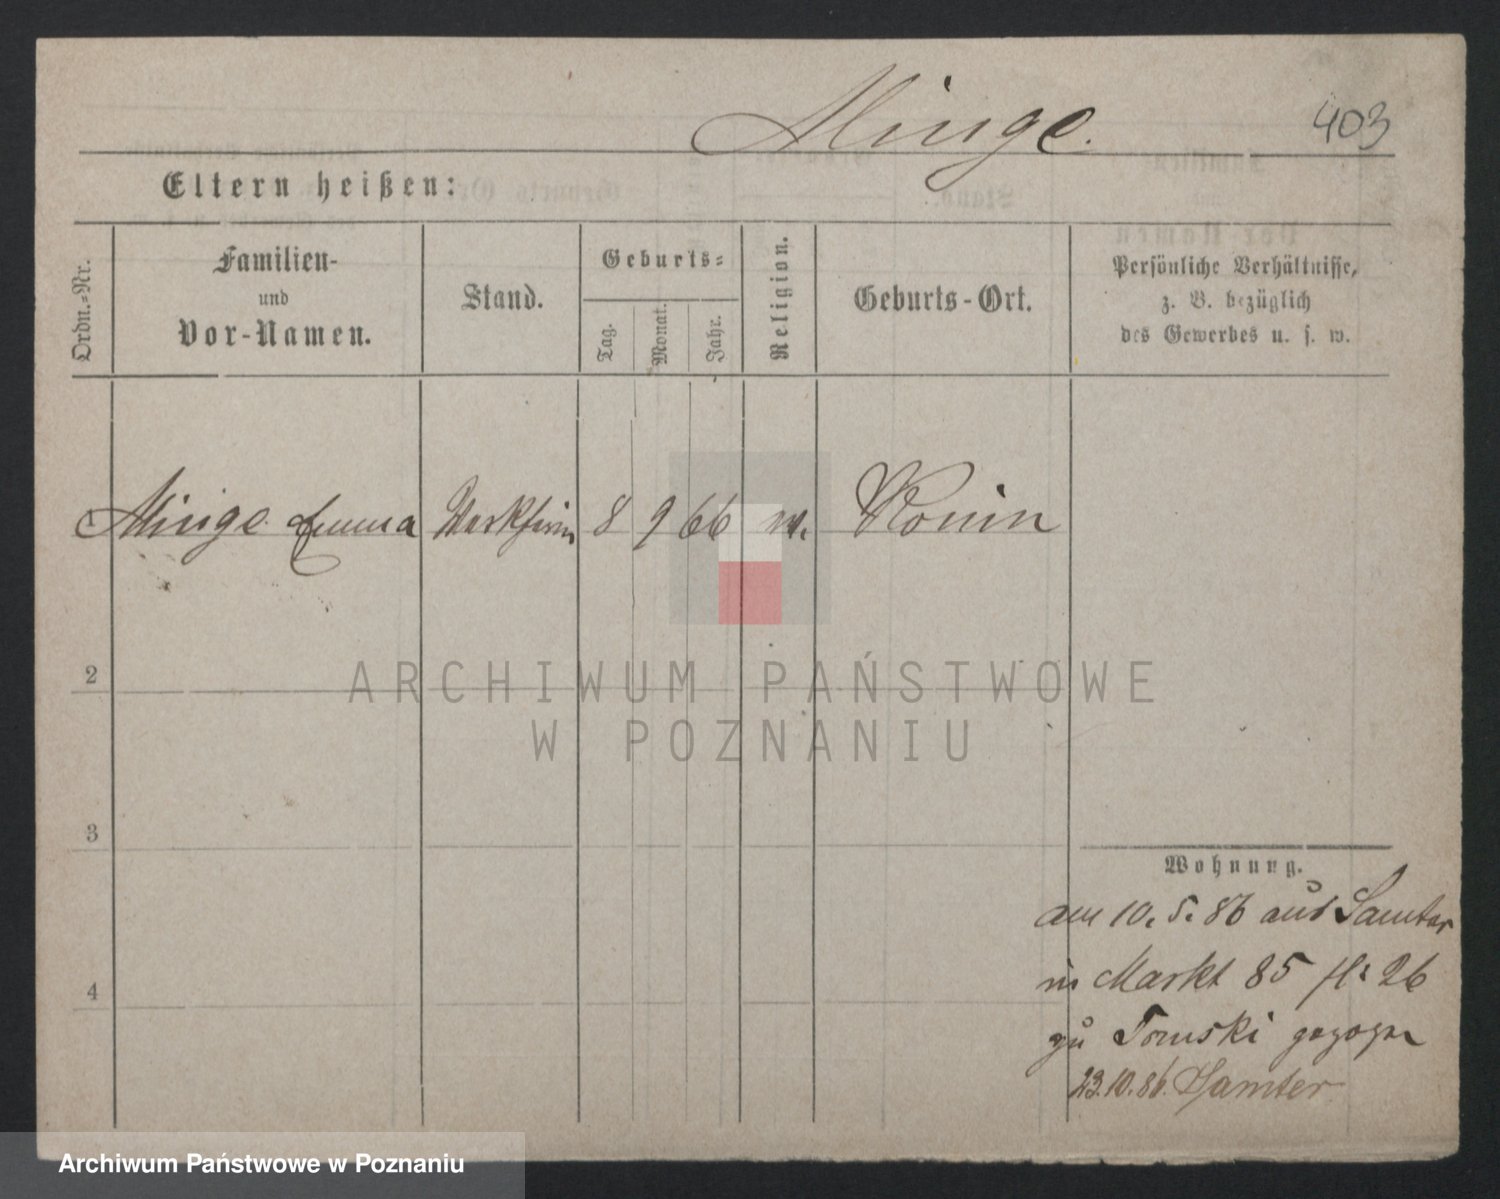 Minge.
403
Eltern heißen:
Ordn.-Nr.
Familien-
und
Vor-Namen.
Stand.
Geburts-
Tag.
Monat.
Jahr.
Religion.
Geburts-Ort.
Persönliche Verhältnisse,
z. B. bezüglich
des Gewerbes u. s. w.
1 Minge Emma 8 9 66 Konin
2
3
4
Wohnung.
am 10. 5. 86 aus Samter
in Markt 85 26
zu Tomski gezogen
23.10.86. Samter
ARCHIWUM PAŃSTWOWE
W POZNANIU
Archiwum Państwowe w Poznaniu